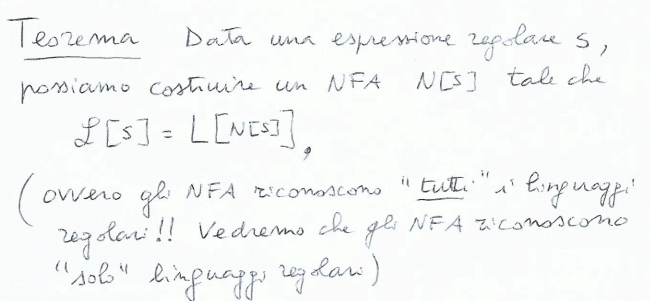 Teorema Data una espressione regolare s,
possiamo costruire un NFA N[s] tale che
ℒ[s] = L[N[s]],
(ovvero gli NFA riconoscono "tutti" i linguaggi
regolari!! Vedremo che gli NFA riconoscono
"solo" linguaggi regolari)